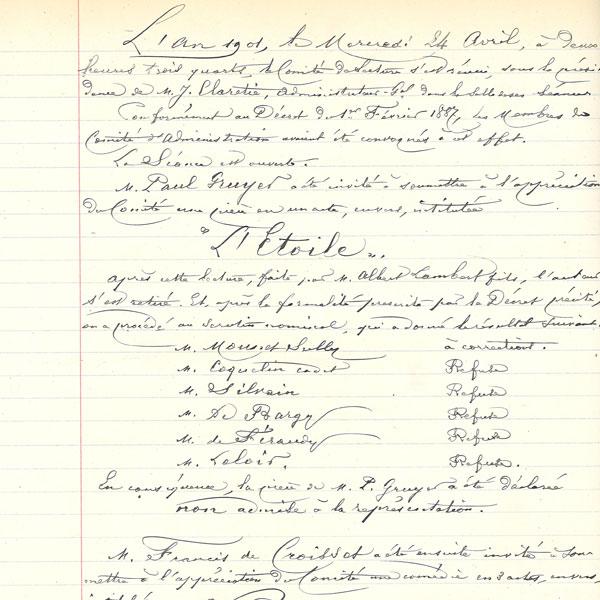 L'an 1901, le Mercredi 24 Avril, à deux
heures trois quarts, le Comité de lecture s'est réuni, sous la prési-
dence de M. J. Claretie, administrateur-Gal dans la salle des Séances.
Conformément au Décret du 1er Février 1887, les Membres du
Comité d'Administration avaient été convoqués à cet effet.
La Séance est ouverte.
M. Paul Gruyer a été invité à soumettre à l'appréciation
du Comité une pièce en un acte, en vers, intitulée
"L'Etoile".
après cette lecture, faite par M. Albert Lambert fils, l'auteur
s'est retiré. Et, après la formalité prescrite par le Décret précité,
on a procédé au scrutin nominal, qui a donné le résultat suivant.
M. Mounet Sully à correction.
M. Coquelin cadet Refusée
M. Silvain Refusée
M. Le Bargy Refusée
M. de Féraudy Refusée
M. Leloir. Refusée.
En conséquence, la pièce de M. P. Gruyer a été déclarée
non admise à la représentation.
M. Francis de Croisset a été ensuite invité à sou-
mettre à l'appréciation du Comité une comédie en 3 actes, en vers,